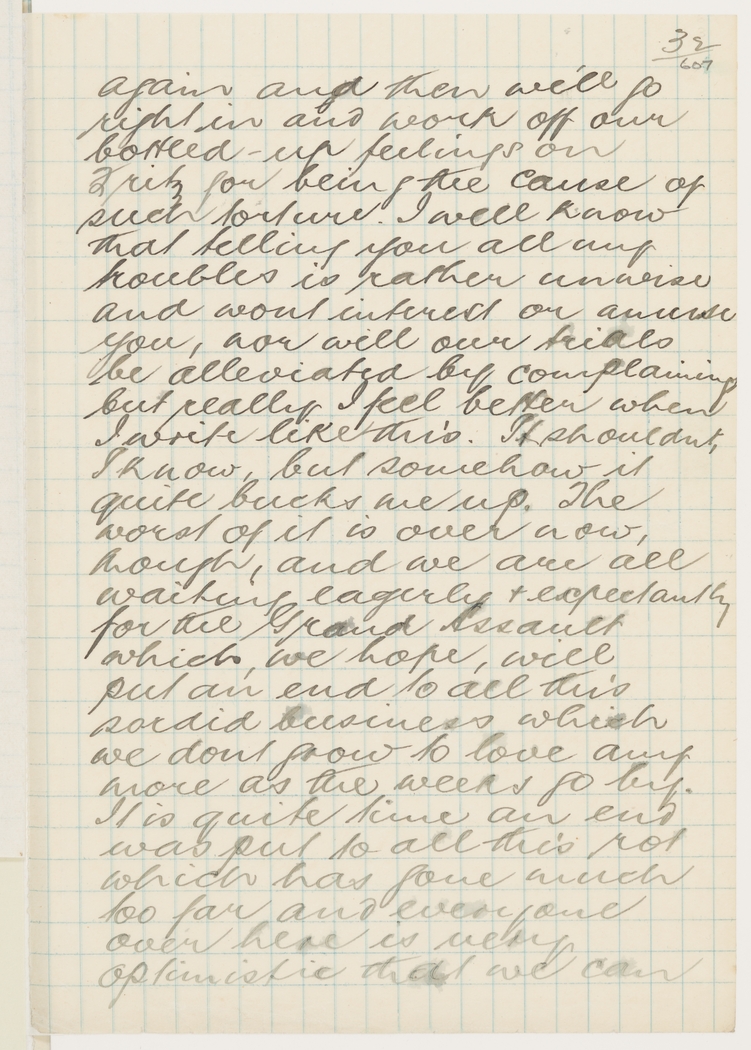 32
607
again and then we'll go
right in and work off our
bottled-up feelings on
Fritz for being the cause of
such torture. I well know
that telling you all my
troubles is rather unwise
and wont interest or amuse
you, nor will our trials
be alleviated by complaining
but really I feel better when
I write like this. I shouldnt,
I know, but somehow it
quite bucks me up. The
worst of it is over now,
though, and we are all
waiting eagerly + expectantly
for the Grand Assault
which, we hope, will
put an end to all this
sordid business which
we dont grow to love any
more as the weeks go by.
It is quite time an end
was put to all this rot
which has gone much
too far and everyone
over here is very
optimistic that we can